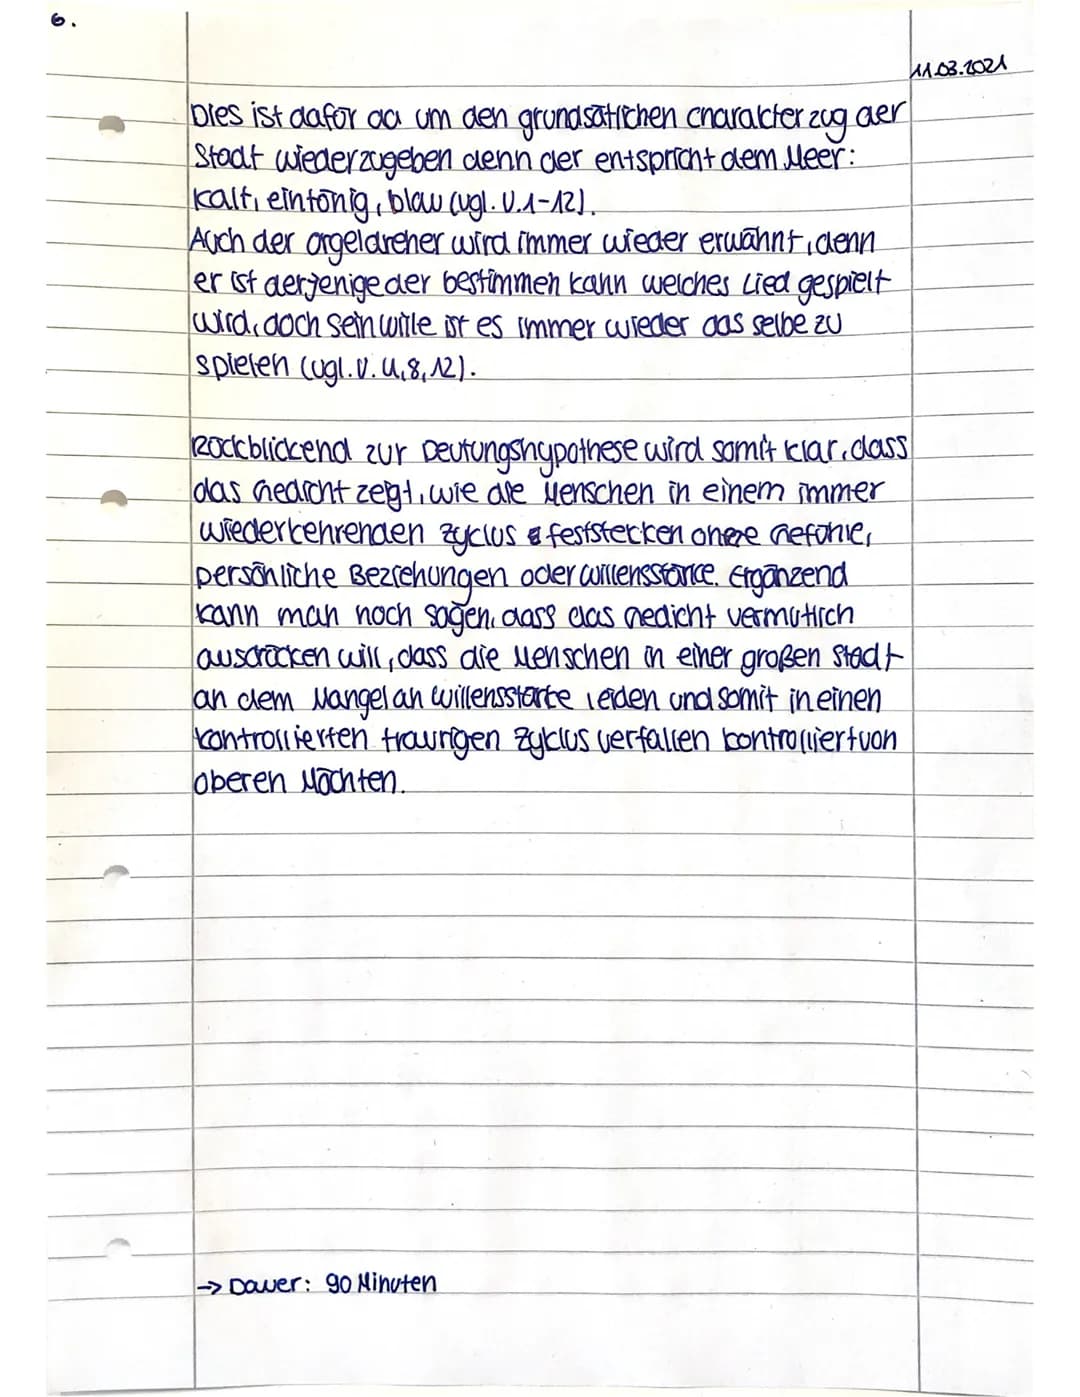 6.
11.03.2021
Dies ist dafür da um den grundsätlichen charakterzug der
Stadt wiederzugeben denn der entspricht dem Meer:
kalt, eintönig, blau (vgl. V. 1-12).
Auch der orgeldreher wird immer wieder erwähnt, denn
er ist derjenige der bestimmen kann welches Lied gespielt
wird, doch sein wille ist es immer wieder das selbe zu
spielen (vgl. V. 4, 8, 12).
Rückblickend zur Deutungshypothese wird somit klar, dass
das Gedicht zeigt, wie die Menschen in einem immer
wiederkehrenden zyclus feststecken ohne Gefühle,
persönliche Beziehungen oder willensstärke. Ergänzend
kann man noch sagen, dass das Gedicht vermutlich
ausdrücken will, dass die Menschen in einer großen Stadt
an dem Mangel an willensstärke leiden und somit in einen
kontrollierten traurigen Zyklus verfallen kontrolliert von
oberen Mächten.
→ Dauer: 90 Minuten